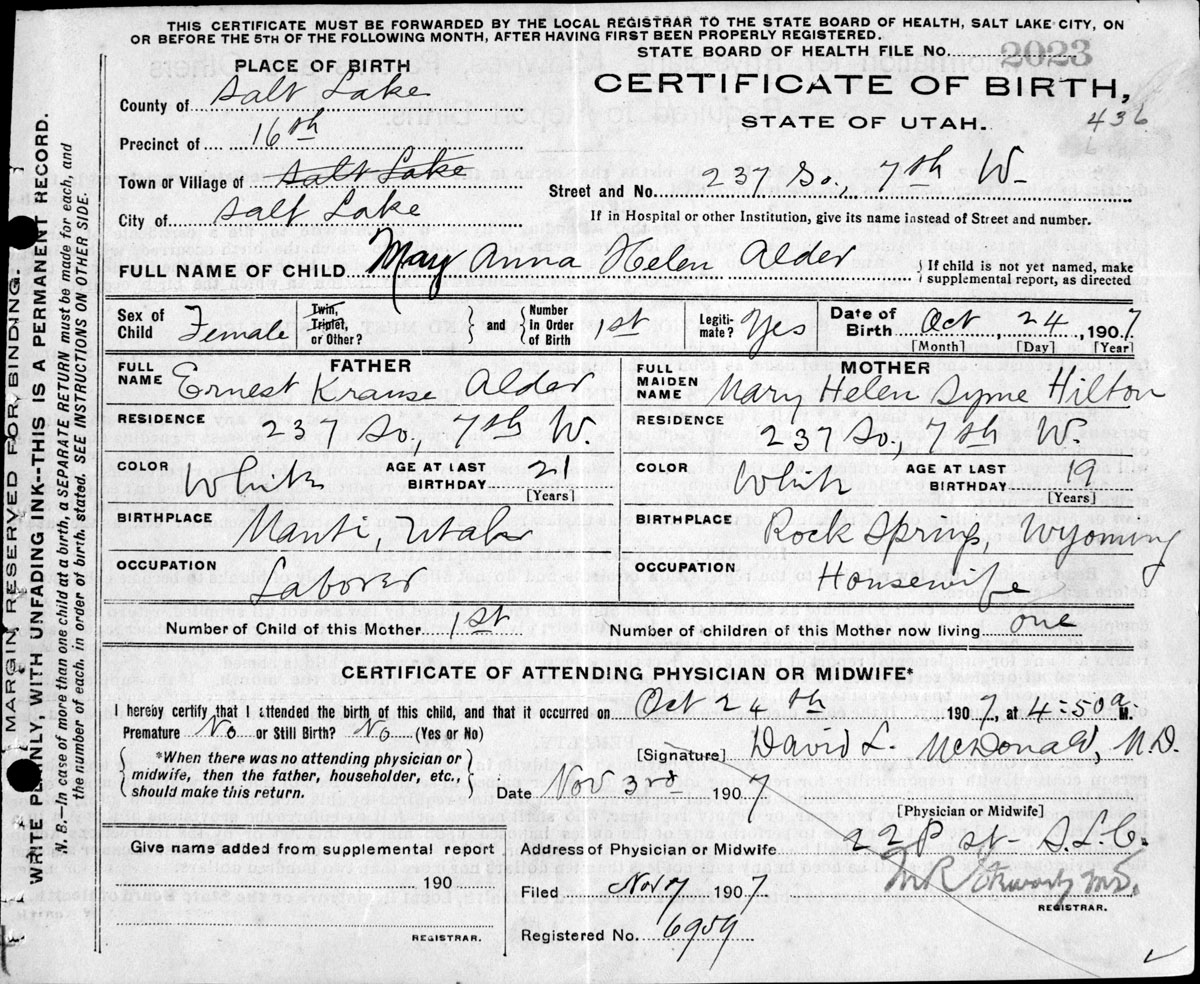 THIS CERTIFICATE MUST BE FORWARDED BY THE LOCAL REGISTRAR TO THE STATE BOARD OF HEALTH, SALT LAKE CITY, ON
OR BEFORE THE 5TH OF THE FOLLOWING MONTH, AFTER HAVING FIRST BEEN PROPERLY REGISTERED.
STATE BOARD OF HEALTH FILE No. 2023
PLACE OF BIRTH
CERTIFICATE OF BIRTH,
County of Salt Lake
STATE OF UTAH.
436
Precinct of 16th
Town or Village of Salt Lake
Street and No. 237 So., 7th W.
City of Salt Lake
If in Hospital or other Institution, give its name instead of Street and number.
FULL NAME OF CHILD Mary Anna Helen Alder
If child is not yet named, make
supplemental report, as directed
Sex of Child Female
Twin, Triplet, or Other?
and Number in Order of Birth 1st
Legitimate? Yes
Date of Birth Oct 24, 1907
[Month] [Day] [Year]
FATHER
FULL NAME Ernest Krause Alder
MOTHER
FULL MAIDEN NAME Mary Helen Syme Hilton
RESIDENCE 237 So, 7th W.
RESIDENCE 237 So, 7th W.
COLOR White
AGE AT LAST BIRTHDAY 21
[Years]
COLOR White
AGE AT LAST BIRTHDAY 19
[Years]
BIRTHPLACE Manti, Utah
BIRTHPLACE Rock Springs, Wyoming
OCCUPATION Laborer
OCCUPATION Housewife
Number of Child of this Mother 1st
Number of children of this Mother now living one
CERTIFICATE OF ATTENDING PHYSICIAN OR MIDWIFE*
I hereby certify that I attended the birth of this child, and that it occurred on Oct 24th 1907, at 4:50 a. M.
Premature No or Still Birth? No (Yes or No)
[Signature] David L. McDonald, M.D.
*When there was no attending physician or
midwife, then the father, householder, etc.,
should make this return.
Date Nov 3rd 1907
[Physician or Midwife]
Give name added from supplemental report
Address of Physician or Midwife 22 P st- S.L.C.
190
Filed Nov 7 1907
REGISTRAR.
REGISTRAR.
Registered No. 6959
MARGIN RESERVED FOR BINDING.
WRITE PLAINLY, WITH UNFADING INK--THIS IS A PERMANENT RECORD.
N. B.--In case of more than one child at a birth, a SEPARATE RETURN must be made for each, and
the number of each, in order of birth, stated. SEE INSTRUCTIONS ON OTHER SIDE.